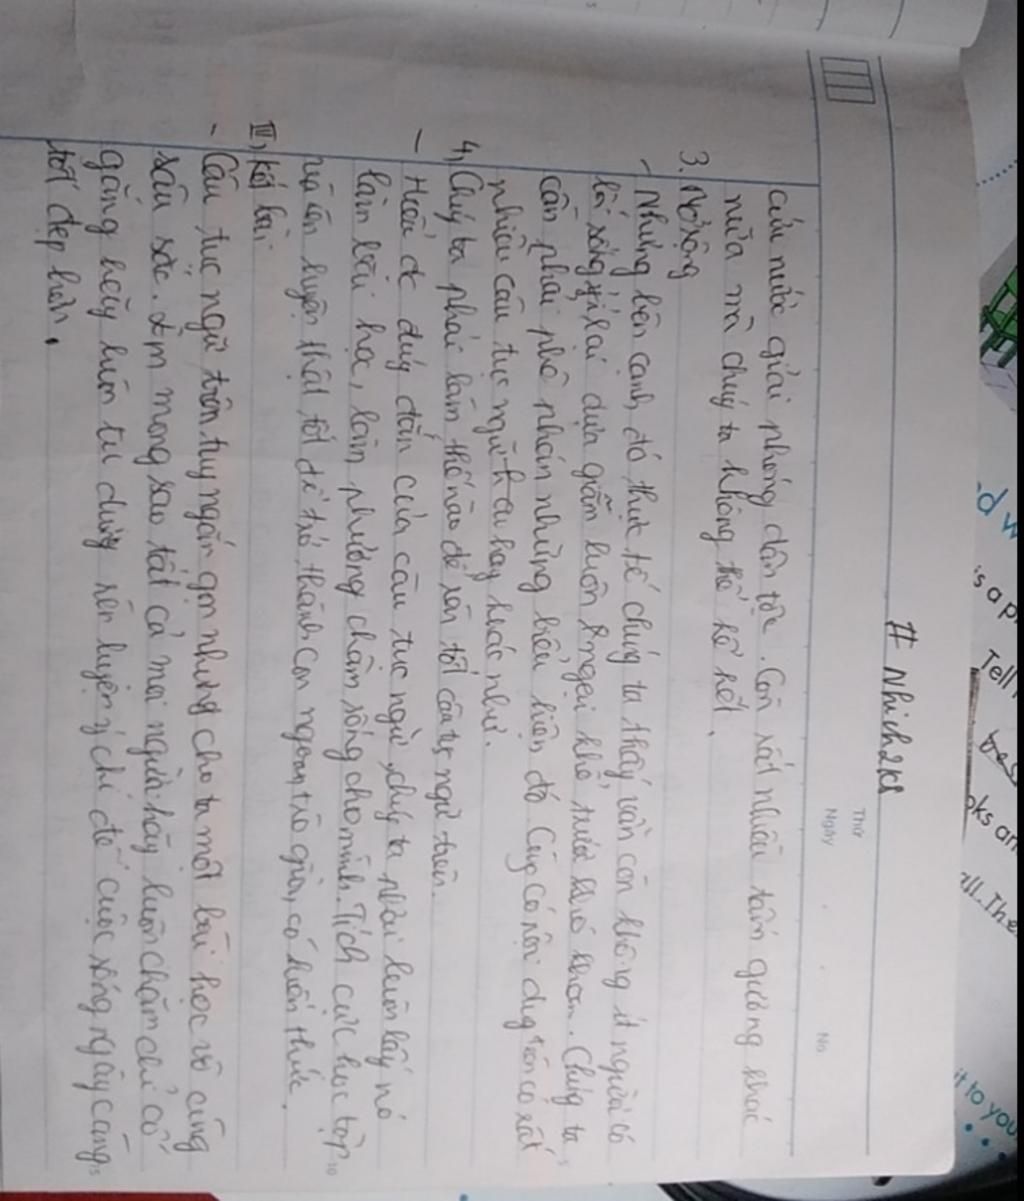 # Nhich2k8
Thứ
Ngày
No
cứu nước giải phóng dân tộc. Còn rất nhiều tấm gương khác
nữa mà chúng ta không thể kể hết.
3. Mở rộng
- Nhưng bên cạnh đó thực tế chúng ta thấy vẫn còn không ít người có
lối sống ỷ lại dựa giẫm luôn ngại khổ, trước khó khăn. Chúng ta
cần phải phê phán những biểu hiện đó Cũng có nội dung trên có rất
nhiều câu tục ngữ hay khác như.
4, Chúng ta phải làm thế nào để tốt câu tục ngữ trên.
- Hiểu đc đúng đắn của câu tục ngữ, chúng ta phải luôn lấy nó
làm bài học, làm phương châm sống cho mình. Tích cực học tập
và rèn luyện thật tốt để trở thành con ngoan, trò giỏi, có kiến thức.
III, kết bài
- Câu tục ngữ trên tuy ngắn gọn nhưng cho ta một bài học vô cùng
sâu sắc. Em mong sao tất cả mọi người hãy luôn chăm chỉ cố
gắng hãy luôn tu dưỡng rèn luyện ý chí để cuộc sống ngày càng
tốt đẹp hơn.
d w
's a p
Tell
bes
oks an
all. The
it to you